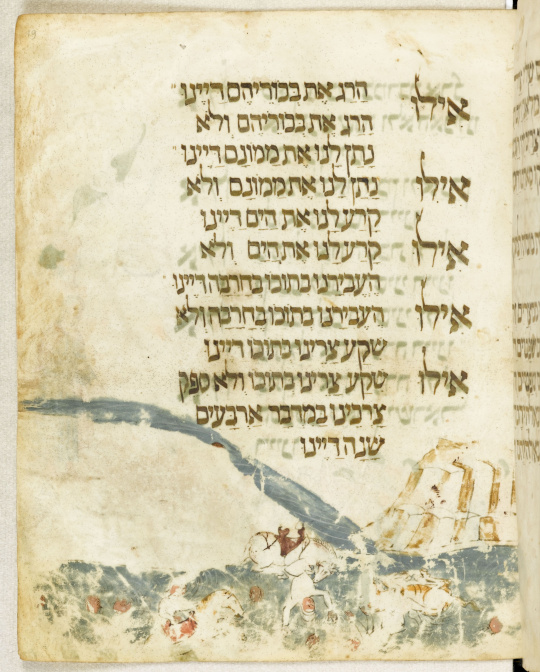 אילו הרג את בכוריהם דיינו
הרג את בכוריהם ולא
נתן לנו את ממונם דיינו
אילו נתן לנו את ממונם ולא
קרע לנו את הים דיינו
אילו קרע לנו את הים ולא
העבירנו בתוכו בחרבה דיינו
אילו העבירנו בתוכו בחרבה ולא
שקע צרינו בתוכו דיינו
אילו שקע צרינו בתוכו ולא ספק
צרכינו במדבר ארבעים
שנה דיינו